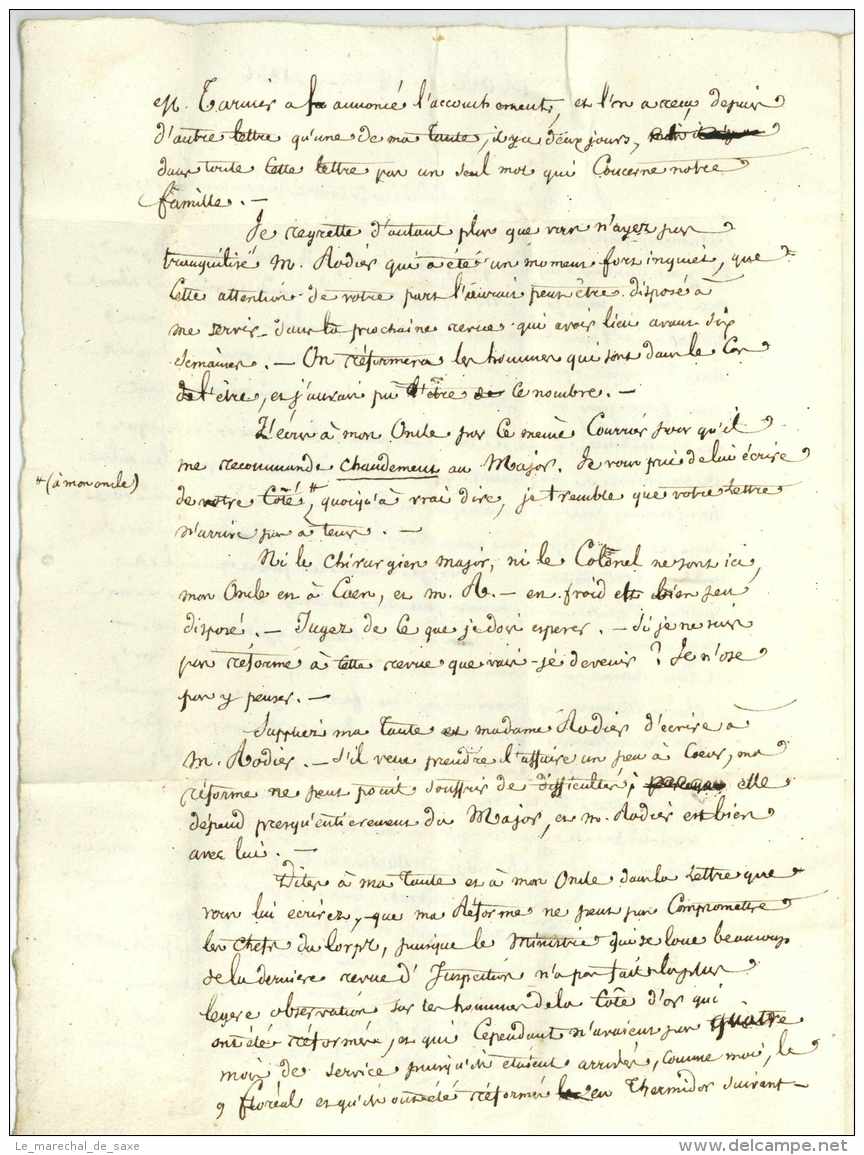 M. Tarnier a annoncé l'accouchement, et l'on a reçu depuis
d'autre lettre qu'une de ma tante, il y a deux jours,
dans toute cette lettre pas un seul mot qui concerne notre
famille. —
Je regrette d'autant plus que vous n'ayez pas
tranquilisé M. Rodier qui a été un moment fort inquiet, que
cette attention de votre part l'œuvrait peut être disposé à
me servir dans la prochaine revue qui avoir lieu avant six
semaines. — On réformera les hommes qui sont dans le Cas
de l'être, et j'aurais pu l'être de ce nombre. —
J'écris à mon Oncle par ce même Courrier pour qu'il
me recommande chaudement au Major. Je vous prie de lui écrire
+ (à mon oncle)
de votre Côté +, quoiqu'à vrai dire, je tremble que votre Lettre
n'arrive pas à tems. —
Ni le chirurgien major, ni le Colonel ne sont ici,
mon Oncle est à Caen, et M. R. — en froid et bien peu
disposé. — Jugez de ce que je dois esperer. — Si je ne suis
pas réformé à cette revue que vais-je devenir ? Je n'ose
pas y penser. —
Suppliez ma Tante et madame Rodier d'écrire à
M. Rodier. — S'il veut prendre l'affaire un peu à Coeur, ma
réforme ne peut point souffrir de difficultés, elle
dépend presqu'entierement du Major, et M. Rodier est bien
avec lui. —
Dites à ma Tante et à mon Oncle dans la Lettre que
vous lui écrirez, que ma Réforme ne peut pas Compromettre
les Chefs du Corps, puisque le Ministre qui se loue beaucoup
de la derniere revue d'Inspection n'a pas fait la plus
legere observation sur les hommes de la Côte d'or qui
ont été réformés, et qui Cependant n'avaient pas quatre
mois de service puisqu'ils etaient arrivés, comme moi, le
9 floréal et qu'ils ont été réformés en Thermidor suivant —
Le_marechal_de_saxe
delcampe.net